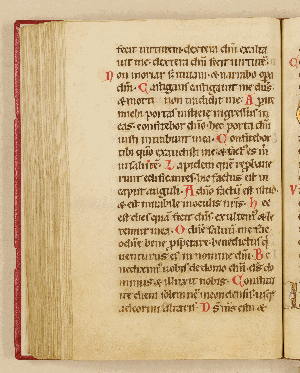 fecit virtutem dextera dñi exalta
uit me dextera dñi fecit virtutē
Non moriar sꝫ uiuam & narrabo opa
dñi. Castigans castigauit me dñs
& morti non tradidit me. Aperite
michi portas iusticie ingressus in
eas confitebor dño hec porta dñi
iusti intrabunt in ea. Confitebor
tibi qm̄ exaudisti me & factꝰ es m̄
in salutē. Lapidem quē reprobaue
runt edificantes hic factus est in
caput anguli. A dño factū est istud
& est mirabile in oculis nr̄is. Hec
est dies quā fecit dñs exultemꝰ & le
temur in ea. O dñe saluū me fac
o dñe bene prosperare benedictus q
venturus est in nomine dñi. Be
nediximꝰ uobis de domo dñi ds do
minus & illuxit nobis. Constitu
ite diem solempnē in condensis usqꝫ
ad cornu altaris. Ds ms es tu &